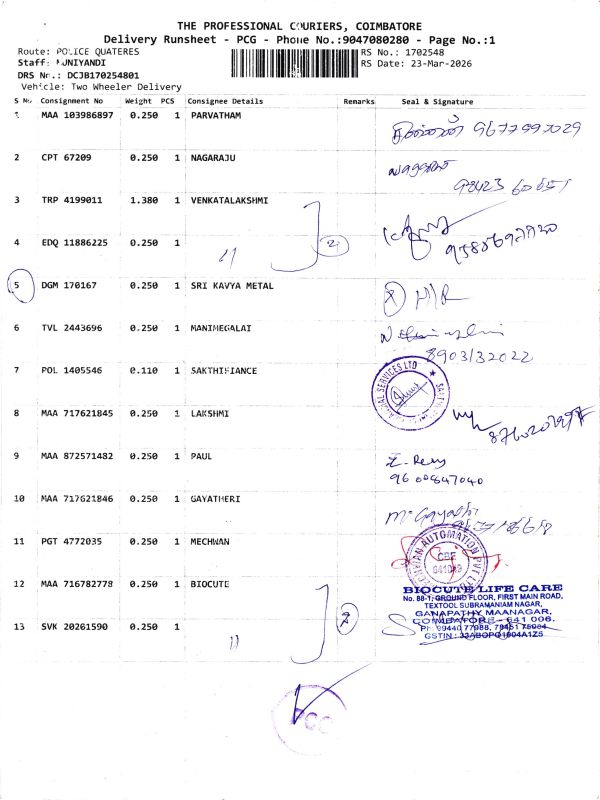 THE PROFESSIONAL COURIERS, COIMBATORE
Delivery Runsheet - PCG - Phone No.:9047080280 - Page No.:1
Route: POLICE QUATERES
RS No.: 1702548
Staff: MUNIYANDI
RS Date: 23-Mar-2026
DRS No.: DCJB170254801
Vehicle: Two Wheeler Delivery
S No Consignment No Weight PCS Consignee Details Remarks Seal & Signature
1 MAA 103986897 0.250 1 PARVATHAM
9677997029
2 CPT 67209 0.250 1 NAGARAJU
3 TRP 4199011 1.380 1 VENKATALAKSHMI
4 EDQ 11886225 0.250 1 11 2
5 DGM 170167 0.250 1 SRI KAVYA METAL
H/R
6 TVL 2443696 0.250 1 MANIMEGALAI
8903132022
7 POL 1405546 0.110 1
8 MAA 717621845 0.250 1 LAKSHMI
9 MAA 872571482 0.250 1 PAUL
9600847040
10 MAA 717621846 0.250 1 GAYATHERI
11 PGT 4772035 0.250 1 MECHWAN
AUTOMATION PVT LTD
CBE
12 MAA 716782778 0.250 1 BIOCUTE
BIOCUTE LIFE CARE
No. 88-1, GROUND FLOOR, FIRST MAIN ROAD,
TEXTOOL SUBRAMANIAM NAGAR,
GANAPATHY MAANAGAR,
COIMBATORE - 641 006.
13 SVK 20261590 0.250 1 11 2